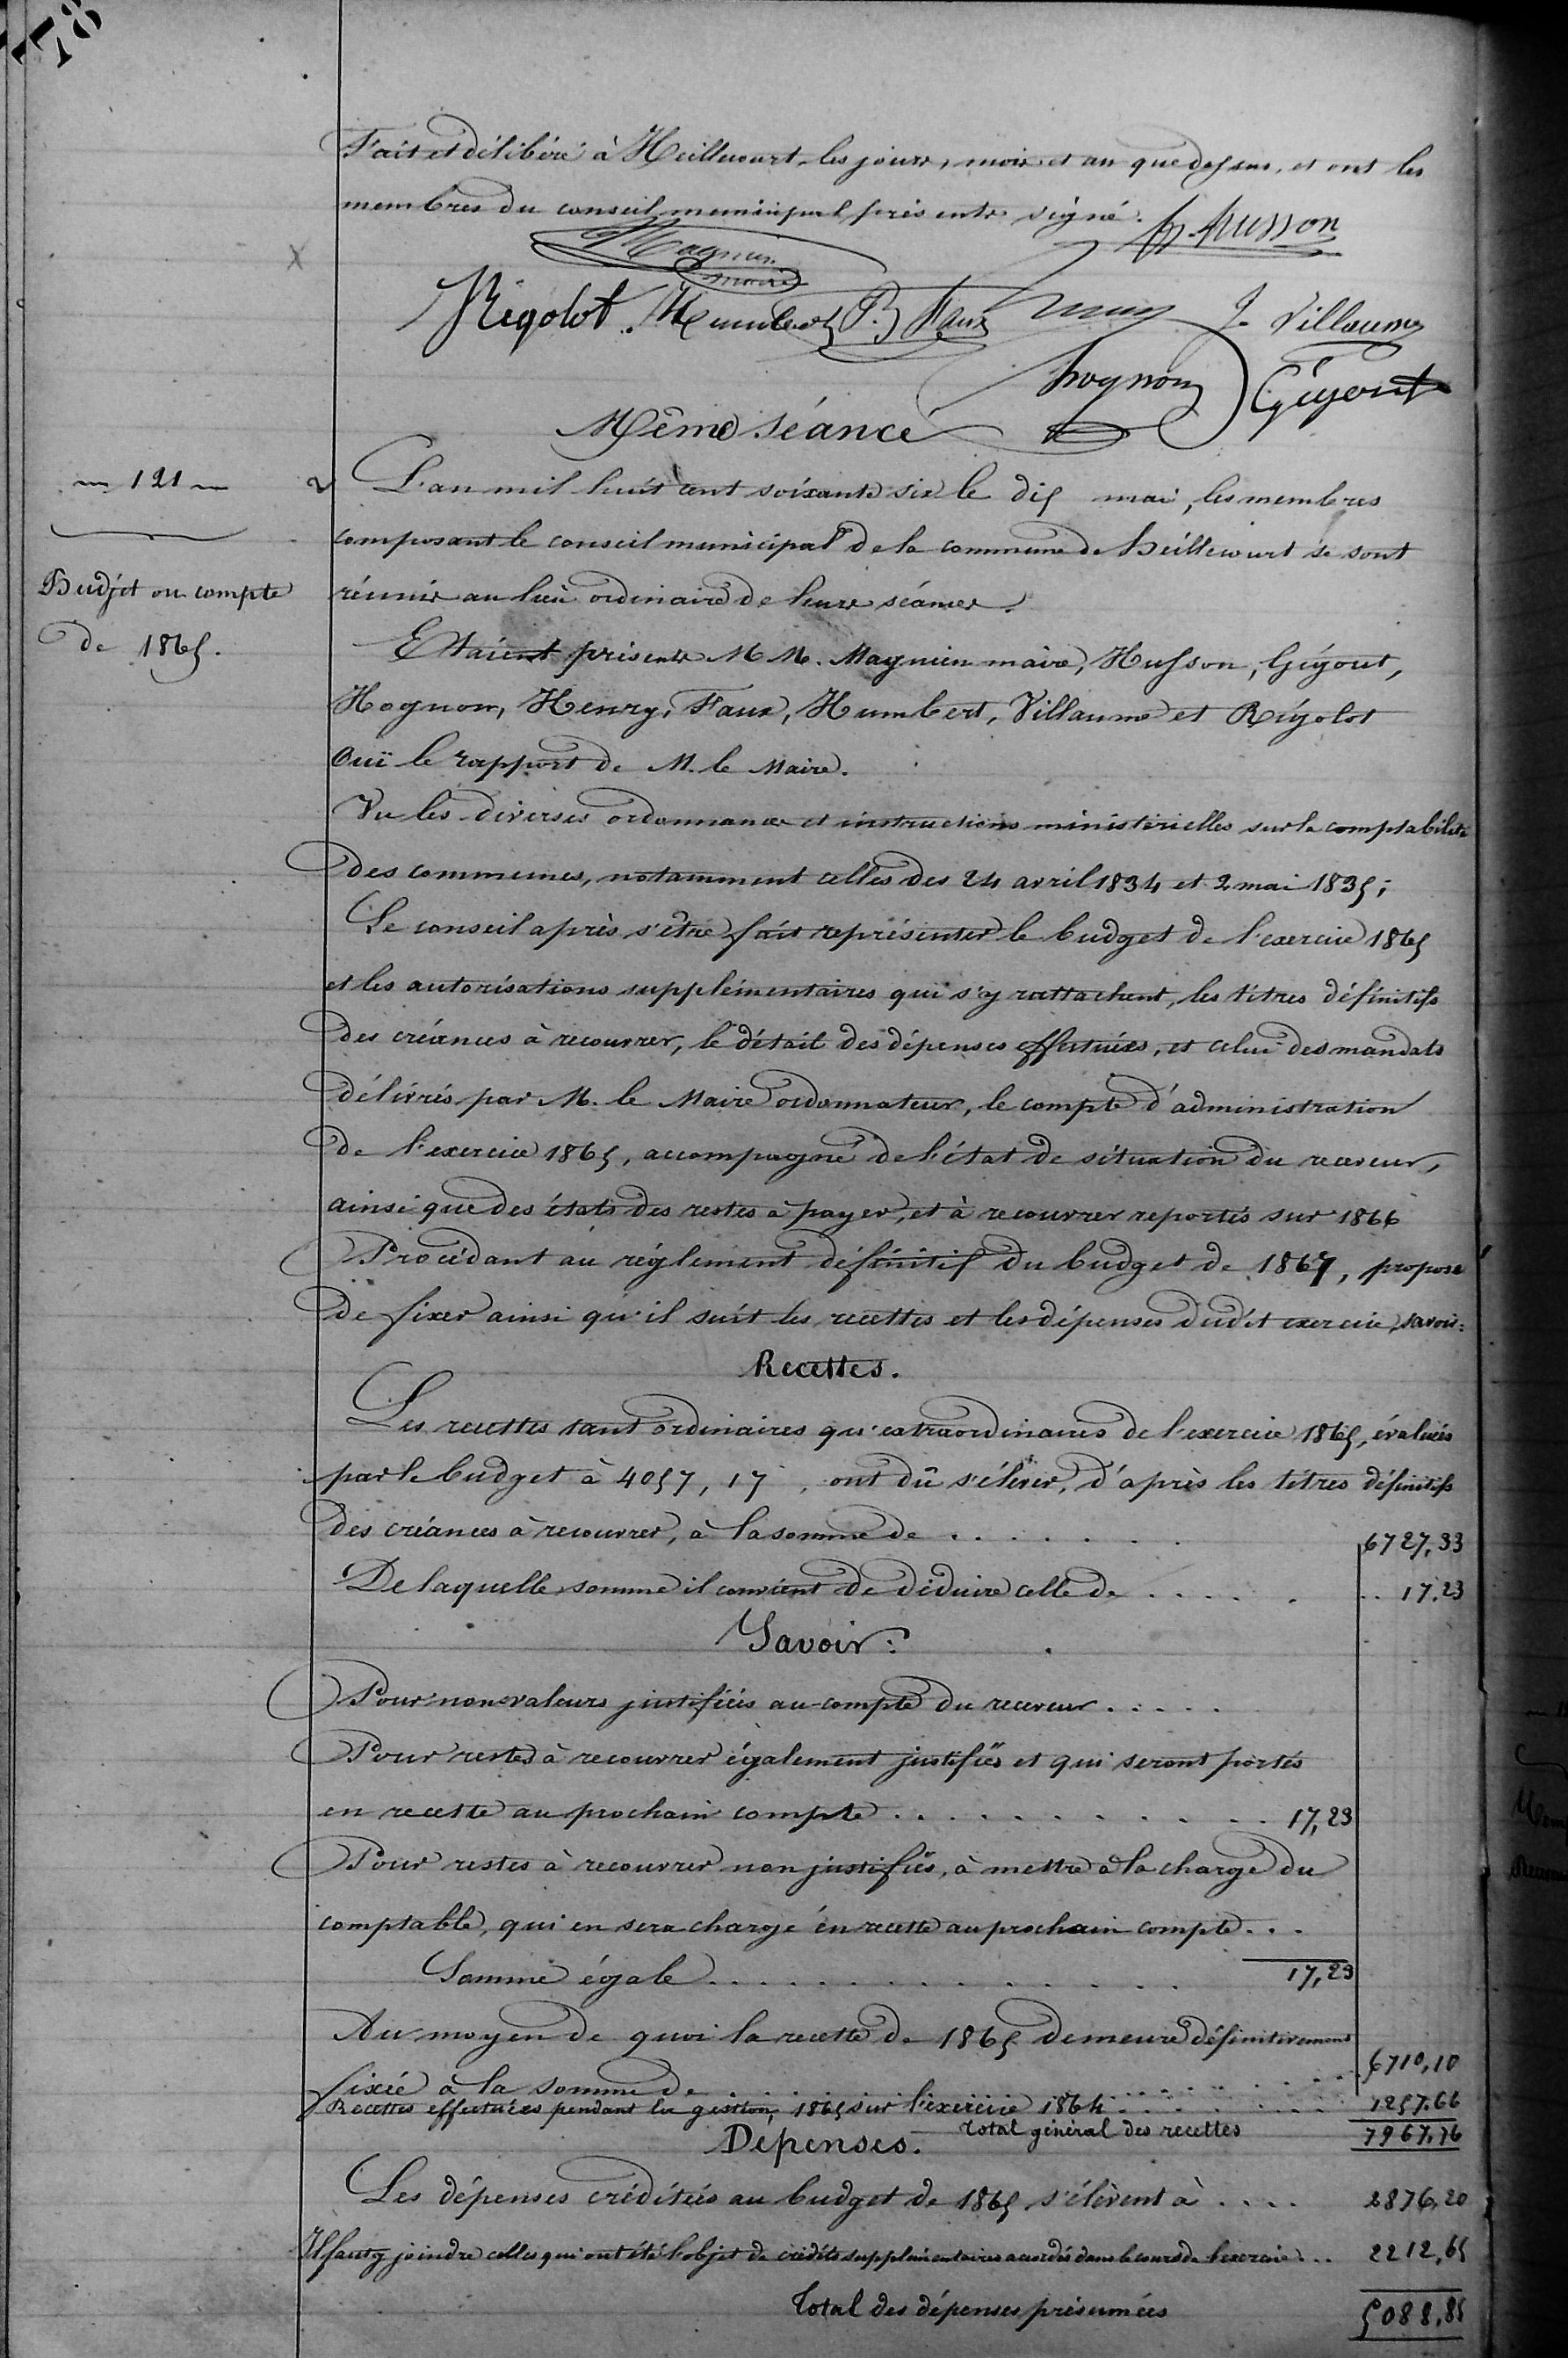 78
Fait et délibéré à Heillecourt, les jours, mois et an que dessus, et ont les
membres du conseil municipal présents signé.
H. Husson
Magnien
maire
Rigolot Humbert P. Faux J. Villaume
Hognon Gégout
Même séance
121
L'an mil huit cent soixante six le dix mai, les membres
composant le conseil municipal de la commune de heillecourt se sont
Budjet ou compte
de 1865.
réunis au lieu ordinaire de leurs séances.
Etaient présents MM. Magnien maire, Husson, Gégout,
Hognon, Henry, Faux, Humbert, Villaume et Rigolot
Ouï le rapport de M. le Maire.
Vu les diverses ordonnances et instructions ministérielles sur la comptabilité
des communes, notamment celles des 24 avril 1834 et 2 mai 1835;
Le conseil après s'être fait représenter le budget de l'exercice 1865
et les autorisations supplémentaires qui s'y rattachent, les titres définitifs
des créances à recouvrer, le détail des dépenses effectuées, et celui des mandats
délivrés par M. le Maire ordonnateur, le compte d'administration
de l'exercice 1865, accompagné de l'état de situation du receveur,
ainsi que des états des restes à payer, et à recouvrer reportés sur 1866
Procédant au réglement définitif du budget de 1867, propose
de fixer ainsi qu'il suit les recettes et les dépenses dudit exercice, savoir:
Recettes.
Les recettes tant ordinaires qu'extraordinaires de l'exercice 1865, évaluées
par le budget à 4057,17, ont dû s'élever, d'après les titres définitifs
des créances à recouvrer, à la somme de . . . . . . 6727,33
De laquelle somme il convient de déduire celle de . . . . . 17,23
Savoir:
Pour non valeurs justifiées au compte du receveur . . . . .
Pour restes à recouvrer également justifiés et qui seront portés
en recette au prochain compte . . . . . . . . . . . 17,23
Pour restes à recouvrer non justifiés, à mettre à la charge du
comptable, qui en sera chargé en recette au prochain compte . . .
Somme égale . . . . . . . . . . . 17,23
Au moyen de quoi la recette de 1865 demeure définitivement
fixée à la somme de . . . . . . . . . . . 6710,10
Recettes effectuées pendant la gestion, 1865 sur l'exercice 1864 . . . . . . 1257,66
Total général des recettes 7967,76
Dépenses.
Les dépenses créditées au budget de 1865 s'élèvent à . . . . 2876,20
Il faut y joindre celles qui ont été l'objet de crédits supplémentaires accordés dans le cours de l'exercice . . . 2212,65
Total des dépenses présumées 5088,85